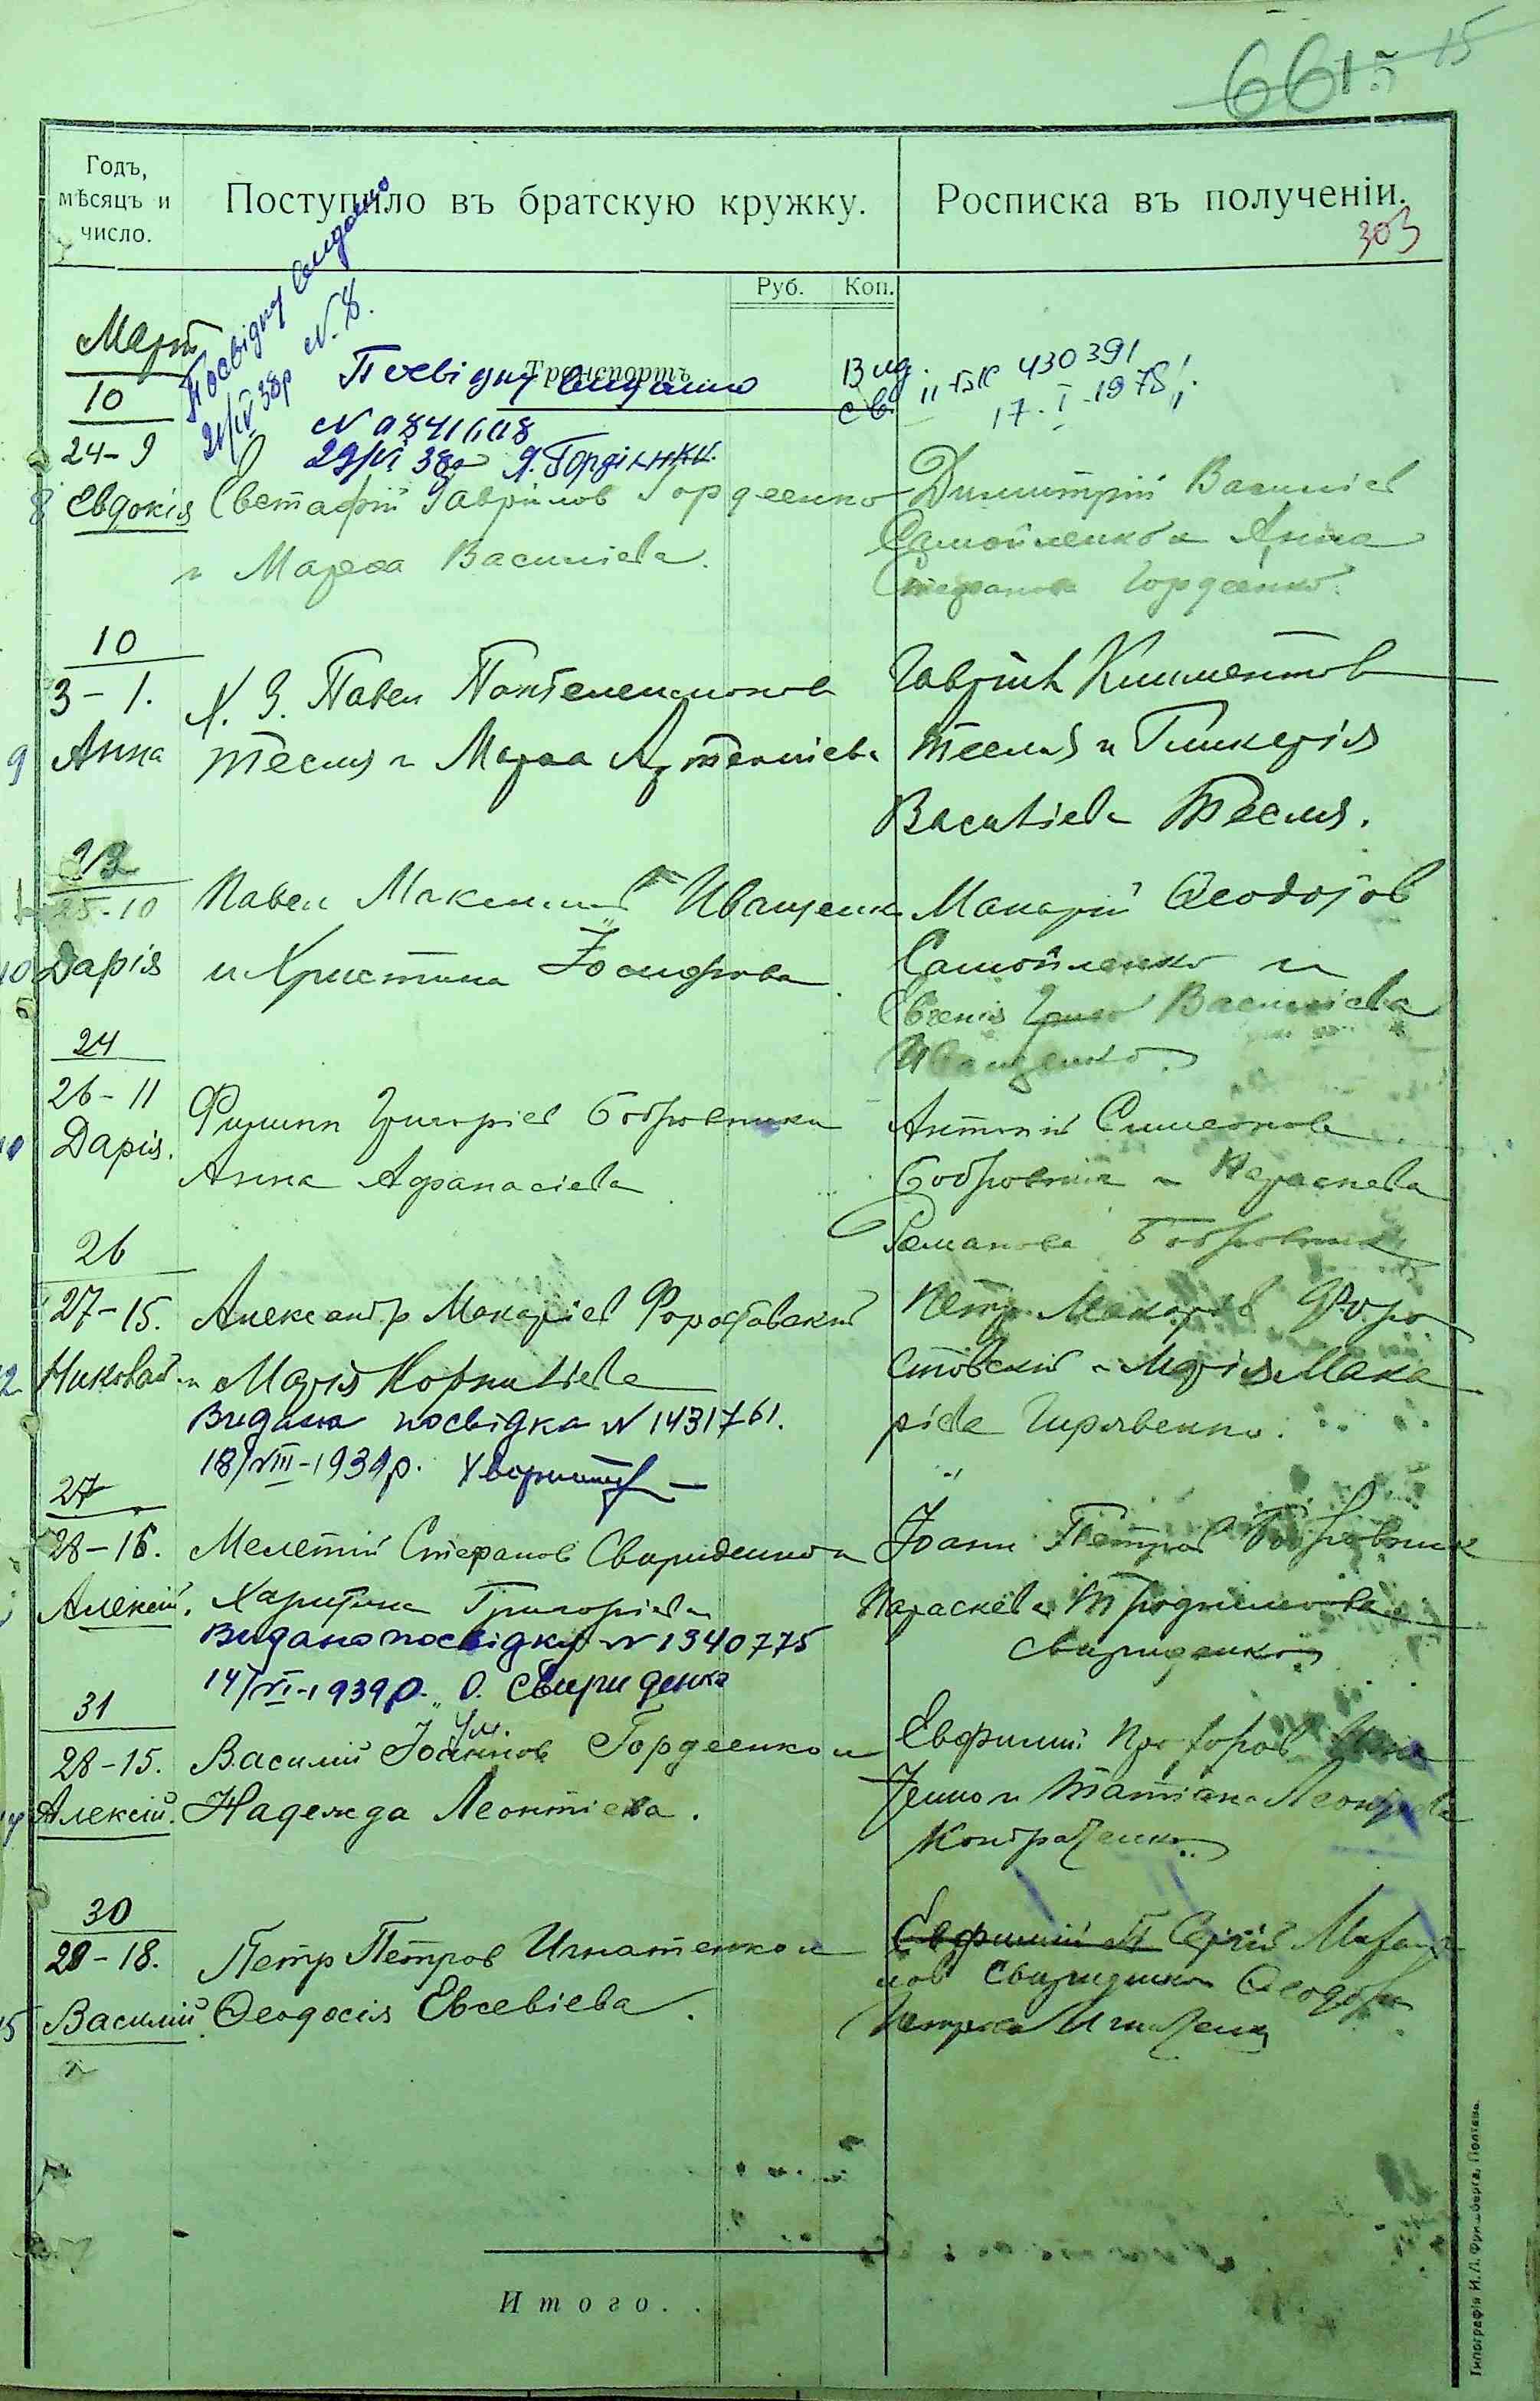 6615 15
Годъ,
мѣсяцъ и
число.
Поступило въ братскую кружку.
Росписка въ полученіи.
303
Руб. Коп.
Март
Посвідку видано
21/IV 38р N. 8.
Транспортъ
Посвідку видано
N 0841608
29/VI 38р Я. Гордієнки.
Вид.
св. II-БК 430391
17-I-1978
10
24-9
8 Евдокія
Евстафій Гаврилов Гордеенко
и Марфа Василиева.
Димитрий Василиев
Самойленко и Анна
Стефанова Гордеенко.
10
3-1.
9 Анна
Х. З. Павел Пантелеимонов
Тесля и Марфа Артемиева
Гавриил Климентов
Тесля и Гликерія
Василіева Тесля.
23
25-10
10 Дарія
Павел Максимов Иващенко
и Христина Іосифова
Макарий Феодоров
Самойленко и
Евгения Василиева
Иващенко.
24
26-11
Дария.
Филипп Григориев Бобровник и
Анна Афанасиева
Антоний Симеонов
Бобровник и Параскева
Романова Бобровник
26
27-15.
12 Николай
Александр Макариев Форостовский
и Мария Корнилиева
Видана посвідка N 1431761.
18/VIII-1939р.
Петр Макариев Форо
стовский и Мария Мака
ріева
27
28-16.
Алексий.
Мелетий Стефанов Свириденко и
Харитина Григориева
Видано посвідку N 1340775
14/VI-1939р. О. Свириденко
Іоанн Петров Бобровник
Параскева Трофимова
Свириденко
31
28-15.
14 Алексий.
Ум.
Василий Іоаннов Гордеенко и
Надежда Леонтиева.
Евфимий Прохоров
Татиана Леонтиева
Кондратенко
30
29-18.
15 Василий
Петр Петров Игнатенко и
Феодосия Евсевіева.
Евфимий П Сергий Михаи
лов Свириденко Феодора
Петрова Игнатенко
Итого..
Типографія И. Л. Фришберга, Полтава.